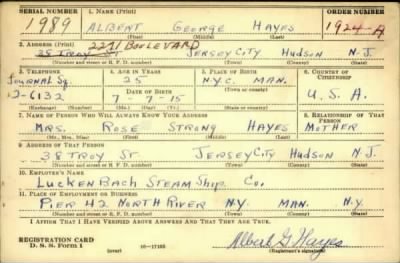 SERIAL NUMBER 1. NAME (Print) ORDER NUMBER
1989 ALBERT GEORGE HAYES 1924-A
(First) (Middle) (Last)
2. ADDRESS (Print) 2271 BOULEVARD
38 TROY ST JERSEY CITY HUDSON N.J.
(Number and street or R. F. D. number) (Town) (County) (State)
3. TELEPHONE 4. AGE IN YEARS 5. PLACE OF BIRTH 6. COUNTRY OF CITIZENSHIP
JOURNAL Sq. 25 N.Y.C. MAN.
DATE OF BIRTH (Town or county)
2-6132 7-7-15 U.S.A.
(Exchange) (Number) (Mo.) (Day) (Yr.) (State or country)
7. NAME OF PERSON WHO WILL ALWAYS KNOW YOUR ADDRESS 8. RELATIONSHIP OF THAT PERSON
MRS. ROSE STRONG HAYES MOTHER
(Mr., Mrs., Miss) (First) (Middle) (Last)
9. ADDRESS OF THAT PERSON
38 TROY ST JERSEY CITY HUDSON N.J.
(Number and street or R. F. D. number) (Town) (County) (State)
10. EMPLOYER'S NAME
LUCKENBACH STEAM SHIP. CO.
11. PLACE OF EMPLOYMENT OR BUSINESS
PIER 42 NORTH RIVER N.Y. MAN. N.Y.
(Number and street or R. F. D. number) (Town) (County) (State)
I AFFIRM THAT I HAVE VERIFIED ABOVE ANSWERS AND THAT THEY ARE TRUE.
REGISTRATION CARD
D. S. S. Form 1 (over) 16-17105 Albert G. Hayes
(Registrant's signature)